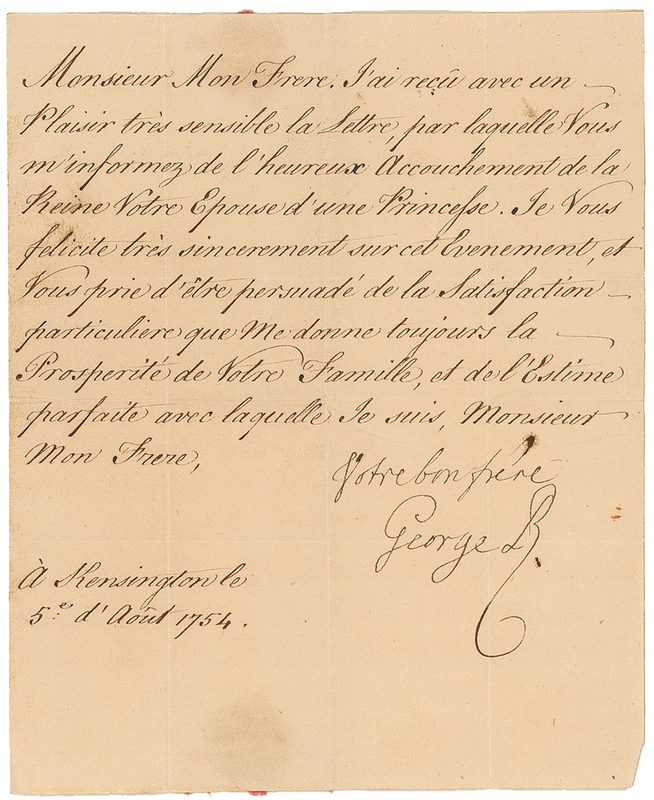 Monsieur Mon Frere. J'ai reçû avec un
Plaisir très sensible la Lettre, par laquelle Vous
m'informez de l'heureux Accouchement de la
Reine Votre Epouse d'une Princesse. Je Vous
felicite très sincerement sur cet Evenement, et
Vous prie d'être persuadé de la Satisfaction
particuliere que Me donne toujours la
Prosperité de Votre Famille, et de l'Estime
parfaite avec laquelle Je suis, Monsieur
Mon Frere,
Votre bon frére
George R
À Kensington le
5.e d'Août 1754.